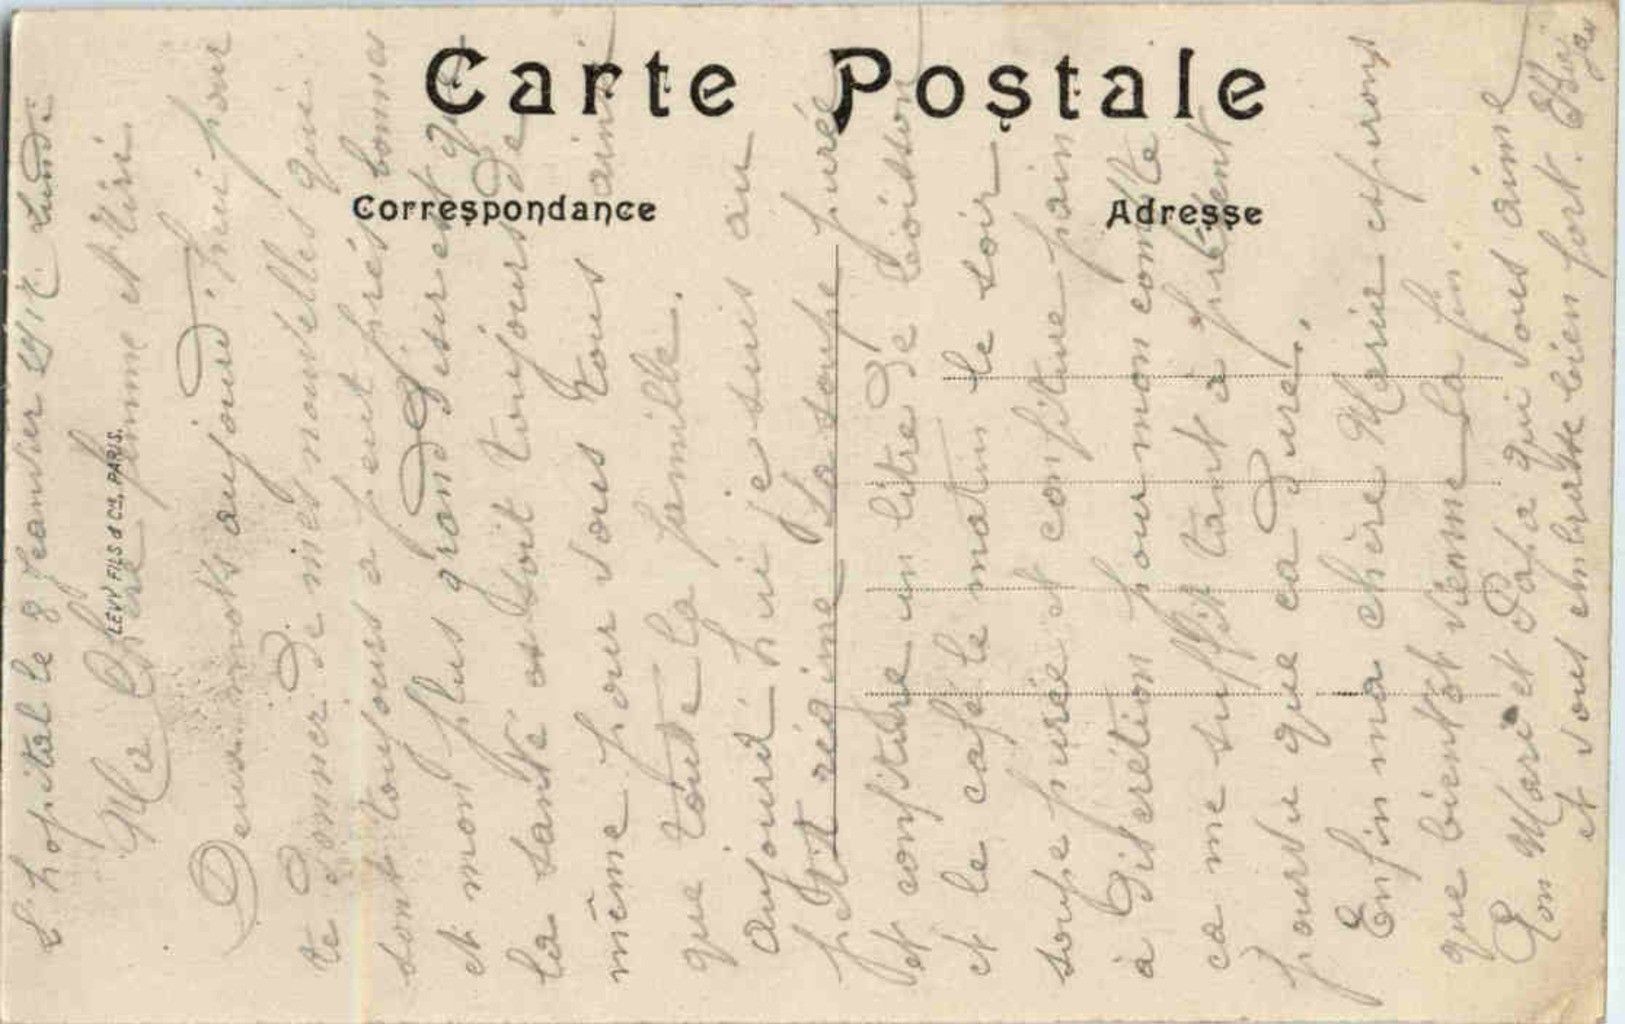 Carte Postale
Correspondance
Adresse
LEVY FILS & Cie, PARIS.
L'hopital le 8 Janvier 191 Lundi
Ma Chère femme et Kiri
Deux mots aujourd'hui pour
te donner de mes nouvelles qui
sont toujours a peut près bonnes
et mon plus grand désir est que
la santé soit toujours de
même pour vous tous ainsi
que toute la famille.
Aujourd'hui je suis au
petit régime la soupe purée
et confiture un litre de boisson
et le café le matin le soir
soupe purée et confiture pain
à discrétion pour mon compte
ca me suffit tant à présent
pourvu que ca dure.
Enfin ma chère Marie esperons
que bientôt vienne la fin
Ton Mari et Papa qui vous aime
et vous embrasse bien fort.